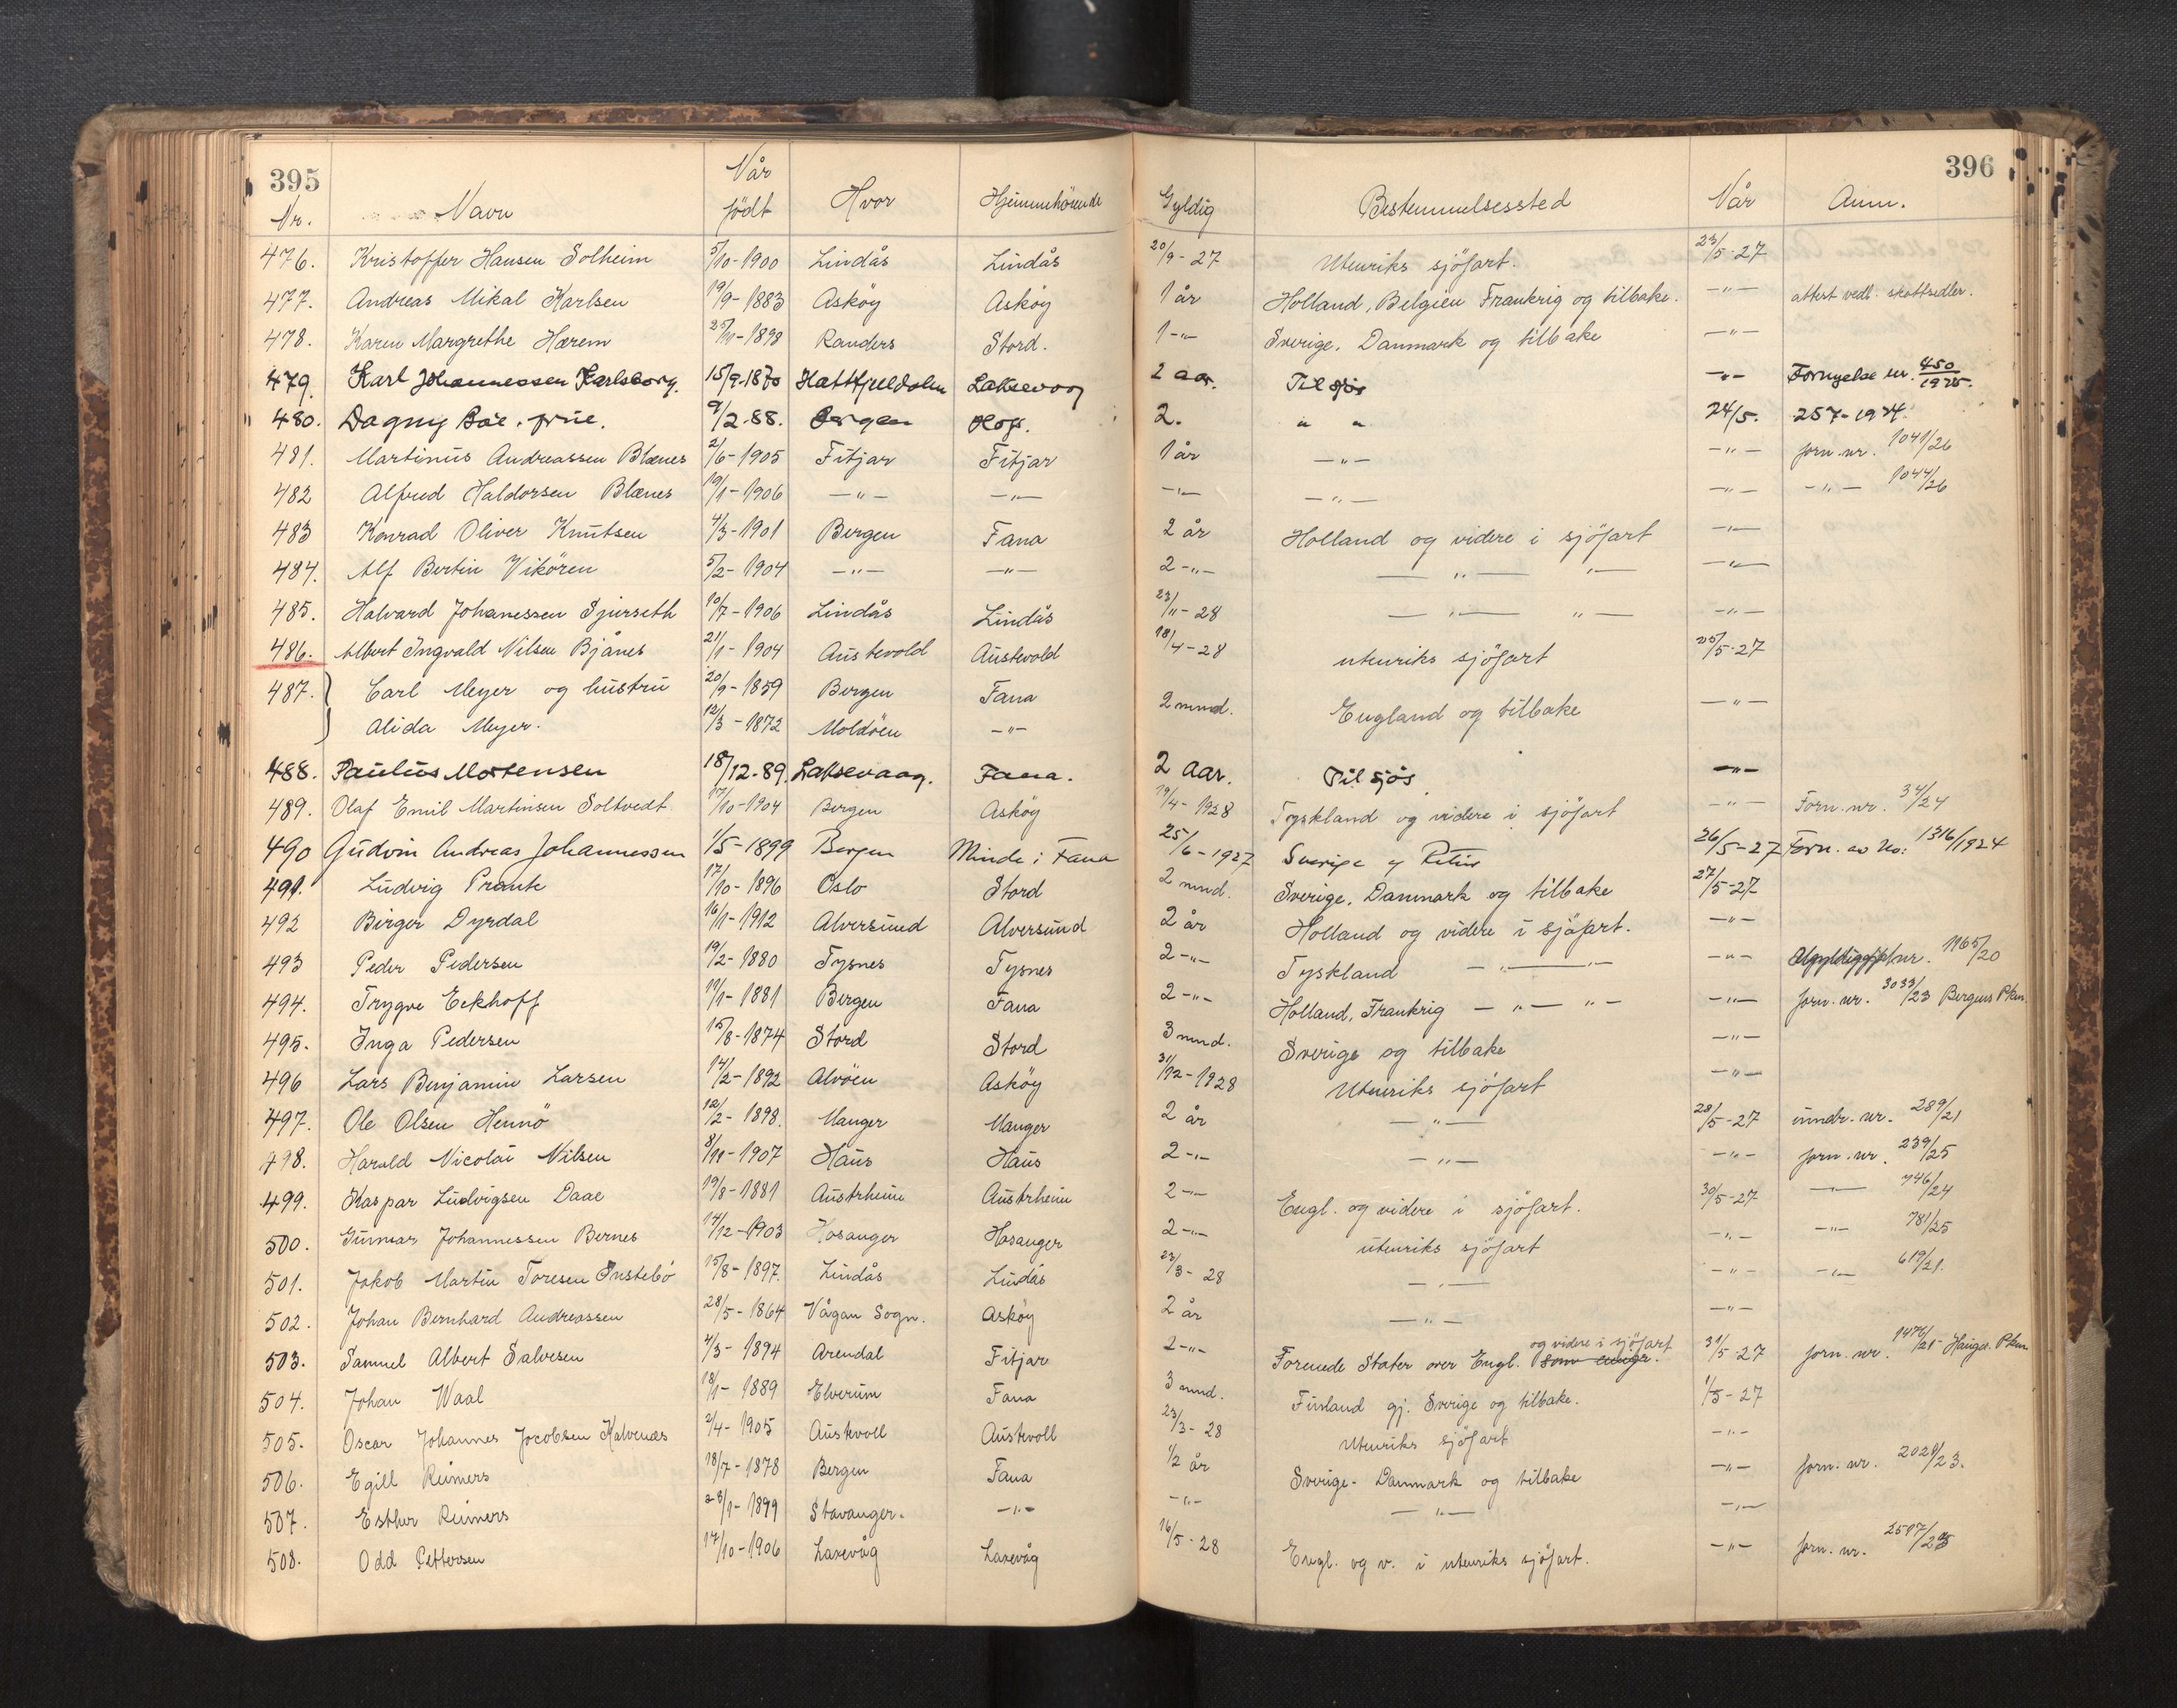 395 396
Nr. Navn Når födt Hvor Hjemmehörende Gyldig Bestemmelsessted Når Anm.
476. Kristoffer Hansen Solheim 5/10-1900 Lindås Lindås 20/9-27 Utenriks sjöfart. 23/5-27
477. Andreas Mikal Karlsen 19/9-1883 Asköy Asköy 1 år Holland, Belgien Frankrig og tilbake. -"- attest vedl. skattsedler.
478. Karen Margrethe Hærem 25/11-1898 Randers Stord. 1-"- Sverige, Danmark og tilbake -"-
479. Karl Johannessen Karlsborg. 15/9-1870 Hattfjelldalen Laksevaag 2 aar. Til sjös -"- Fornyelse nr. 450/1925.
480. Dagny Böe, frue. 9/2-88. Bergen 2. " " 24/5. 257-1924.
481. Martinus Andreassen Blænes 2/6-1905 Fitjar Fitjar 1 år -"- -"- forn. nr. 1041/26
482 Alfred Haldorsen Blænes 19/1-1906 -"- -"- -"- -"- -"- -"- 1044/26
483 Konrad Oliver Knutsen 4/3-1901 Bergen Fana 2 år Holland og videre i sjöfart -"-
484. Alf Bertin Vikören 5/2-1904 -"- -"- 2-"- -"- "- -"-
485. Halvard Johanessen Sjurseth 10/7-1906 Lindås Lindås 23/11-28 -"- "- -"-
486. Albert Ingvald Nilsen Bjånes 21/1-1904 Austevold Austevold 18/4-28 utenriks sjöfart 25/5-27
487. Carl Meyer og hustru 20/9-1859 Bergen Fana 2 mnd. England og tilbake -"-
Alida Meyer. 12/3-1872 Moldöen -"-
488. Paulus Mortensen 18/12-89. Laksevaag. Fana. 2 Aar. Til sjös -"-
489. Olaf Emil Martinsen Soltvedt 17/10-1904 Bergen Asköy 19/4-1928 Tyskland og videre i sjöfart -"- Forn. nr. 34/24
490 Gudvin Andreas Johannessen 1/5-1899 Bergen Minde i Fana 25/6-1927 Sverige og Retur 26/5-27 Forn. av No: 1316/1924
491. Ludvig Prante 17/10-1896 Oslo Stord 2 mnd. Sverige, Danmark og tilbake 27/5-27
492 Birger Dyrdal 16/1-1912 Alversund Alversund 2 år Holland og videre i sjöfart. -"-
493 Peder Pedersen 19/2-1880 Tysnes Tysnes 2-"- Tyskland -"- -"- nr. 1165/20
494. Trygve Eckhoff 11/1-1881 Bergen Fana 2-"- Holland, Frankrig -"- "- -"- forn. nr. 3033/23 Bergens Pkm.
495. Inga Pedersen 15/8-1874 Stord Stord 3 mnd. Sverige og tilbake -"-
496 Lars Benjamin Larsen 14/2-1892 Alvöen Asköy 31/12-1928 Utenriks sjöfart -"-
497. Ole Olsen Hennö 12/2-1898. Manger Manger 2 år -"- 28/5-27 inndr. nr. 289/21
498. Harald Nicolai Nilsen 8/11-1907 Haus Haus 2-"- -"- -"- forn. nr. 239/25
499. Kaspar Ludvigsen Daae 19/8-1881 Austrheim Austrheim 2-"- Engl. og videre i sjöfart. 30/5-27 -"- 746/24
500. Gunnar Johannessen Bernes 14/12-1903 Hosanger Hosanger 2-"- utenriks sjöfart -"- -"- 781/25
501. Jakob Martin Toresen Instebö 15/8-1897. Lindås Lindås 23/3-28 -"- -"- -"- 619/21.
502. Johan Bernhard Andreassen 28/5-1864 Vågan Sogn. Asköy 2 år -"- -"-
503. Samuel Albert Salvesen 4/3-1894 Arendal Fitjar 2-"- Forenede Stater over Engl. og videre i sjöfart som emigr. 31/5-27 forn. nr. 1476/21 Hauges. Pkm
504. Johan Waal 18/1-1889 Elverum Fana 3 mnd. Finland gj. Sverige og tilbake. 1/5-27
505. Oscar Johannes Jacobsen Kalvenæs 2/4-1905 Austevoll Austevoll 23/3-28 Utenriks sjöfart -"-
506. Egill Reimers 18/7-1878 Bergen Fana 1/2 år Sverige-Danmark og tilbake -"- forn. nr. 2021/23.
507. Esther Reimers 23/1-1899 Stavanger. -"- -"- -"- -"-
508. Odd Pettersen 17/10-1906 Laxevåg Laxevåg 16/5-28 Engl. og v. i utenriks sjöfart. -"- forn. nr.